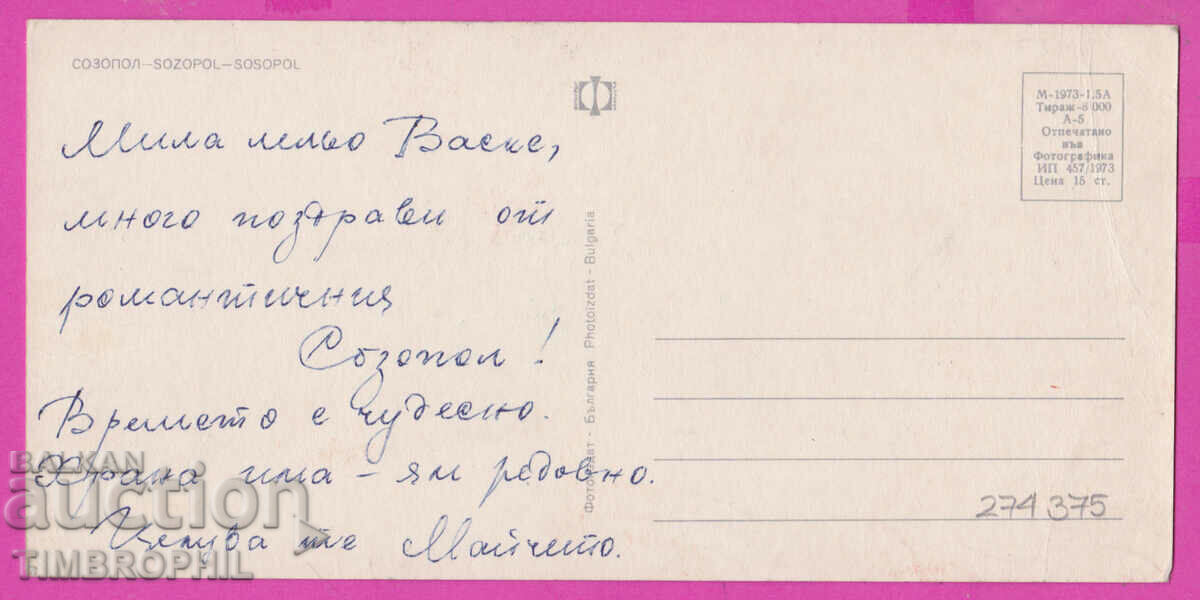 СОЗОПОЛ—SOZOPOL—SOSOPOL
Мила лельо Васке,
много поздрави от
романтичния
Созопол!
Времето е чудесно.
Храна има – ям редовно.
Целува те Майчето.
Фотоиздат - България Photoizdat - Bulgaria
М-1973-1,5А
Тираж-8 000
А-5
Отпечатано
във
Фотографика
ИП 457/1973
Цена 15 ст.
274 375
BALKAN
auction
TIMBROPHIL